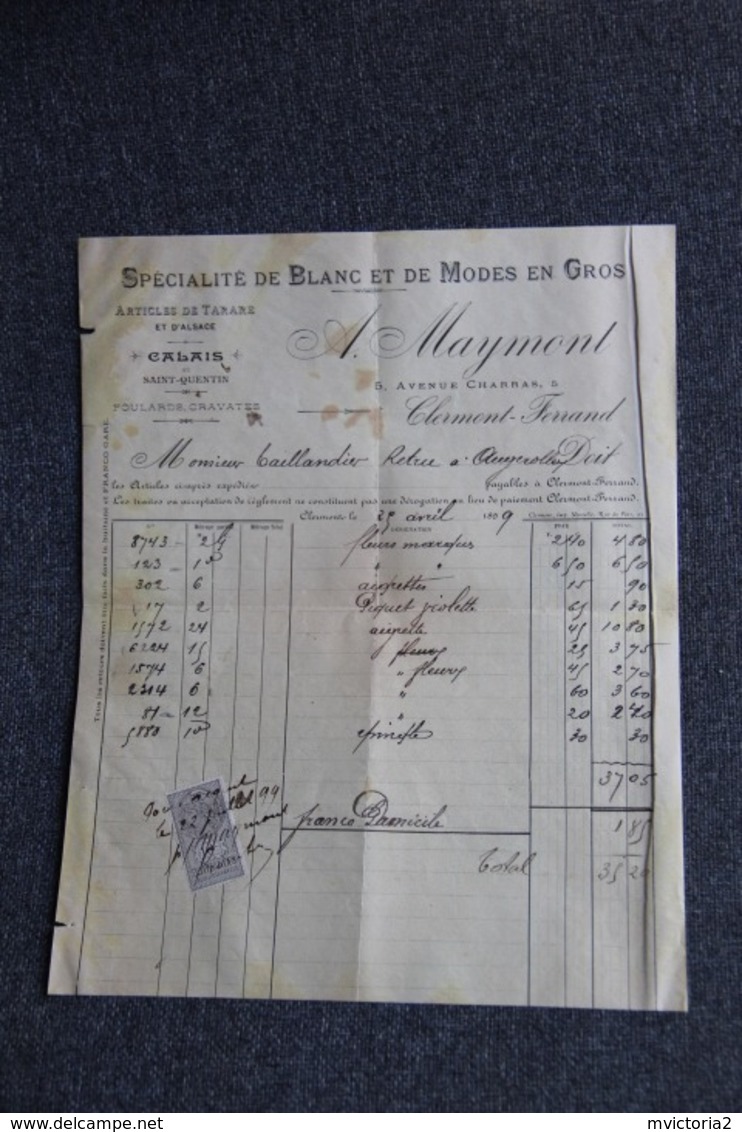 SPÉCIALITÉ DE BLANC ET DE MODES EN GROS
ARTICLES DE TARARE
ET D'ALSACE
CALAIS
ET
SAINT-QUENTIN
FOULARDS, CRAVATES
A. Maymont
5, AVENUE CHARRAS, 5
Clermont-Ferrand
Monsieur Taillandier à Doit
les Articles ci-après expédiés payables à Clermont-Ferrand.
Les traites ou acceptation de règlement ne constituent pas une dérogation au lieu de paiement Clermont-Ferrand.
Clermont, le 25 avril 1899
Tous les retours doivent être faits dans la huitaine et FRANCO GARE.
8743 2 fleurs 2 40 4 80
123 " " 6 50 6 50
302 6 aigrettes 15 90
17 2 Piquet violette 65 1 30
1572 24 aigrette 45 10 80
6224 15 fleurs 25 3 75
1574 6 " fleurs 45 2 70
2314 6 " 60 3 60
81 12 " 20 2 40
5880 30 30
37 05
franco Domicile 1 85
Total 35 20
Pour acquit
le 22 juillet 99
p. Maymont
mvictoria2
delcampe.net